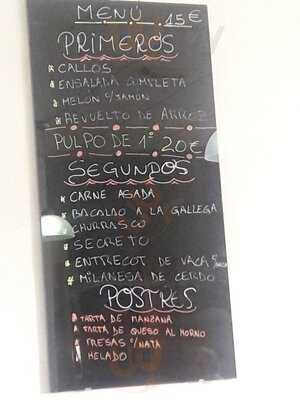 MENÚ 15€
PRIMEROS
CALLOS
ENSALADA COMPLETA
MELÓN C/JAMÓN
REVUELTO DE ARROZ
PULPO DE 1ª 20€
SEGUNDOS
CARNE ASADA
BACALAO A LA GALLEGA
CHURRASCO
SECRETO
ENTRECOT DE VACA
MILANESA DE CERDO
POSTRES
TARTA DE MANZANA
TARTA DE QUESO AL HORNO
FRESAS C/NATA
HELADO